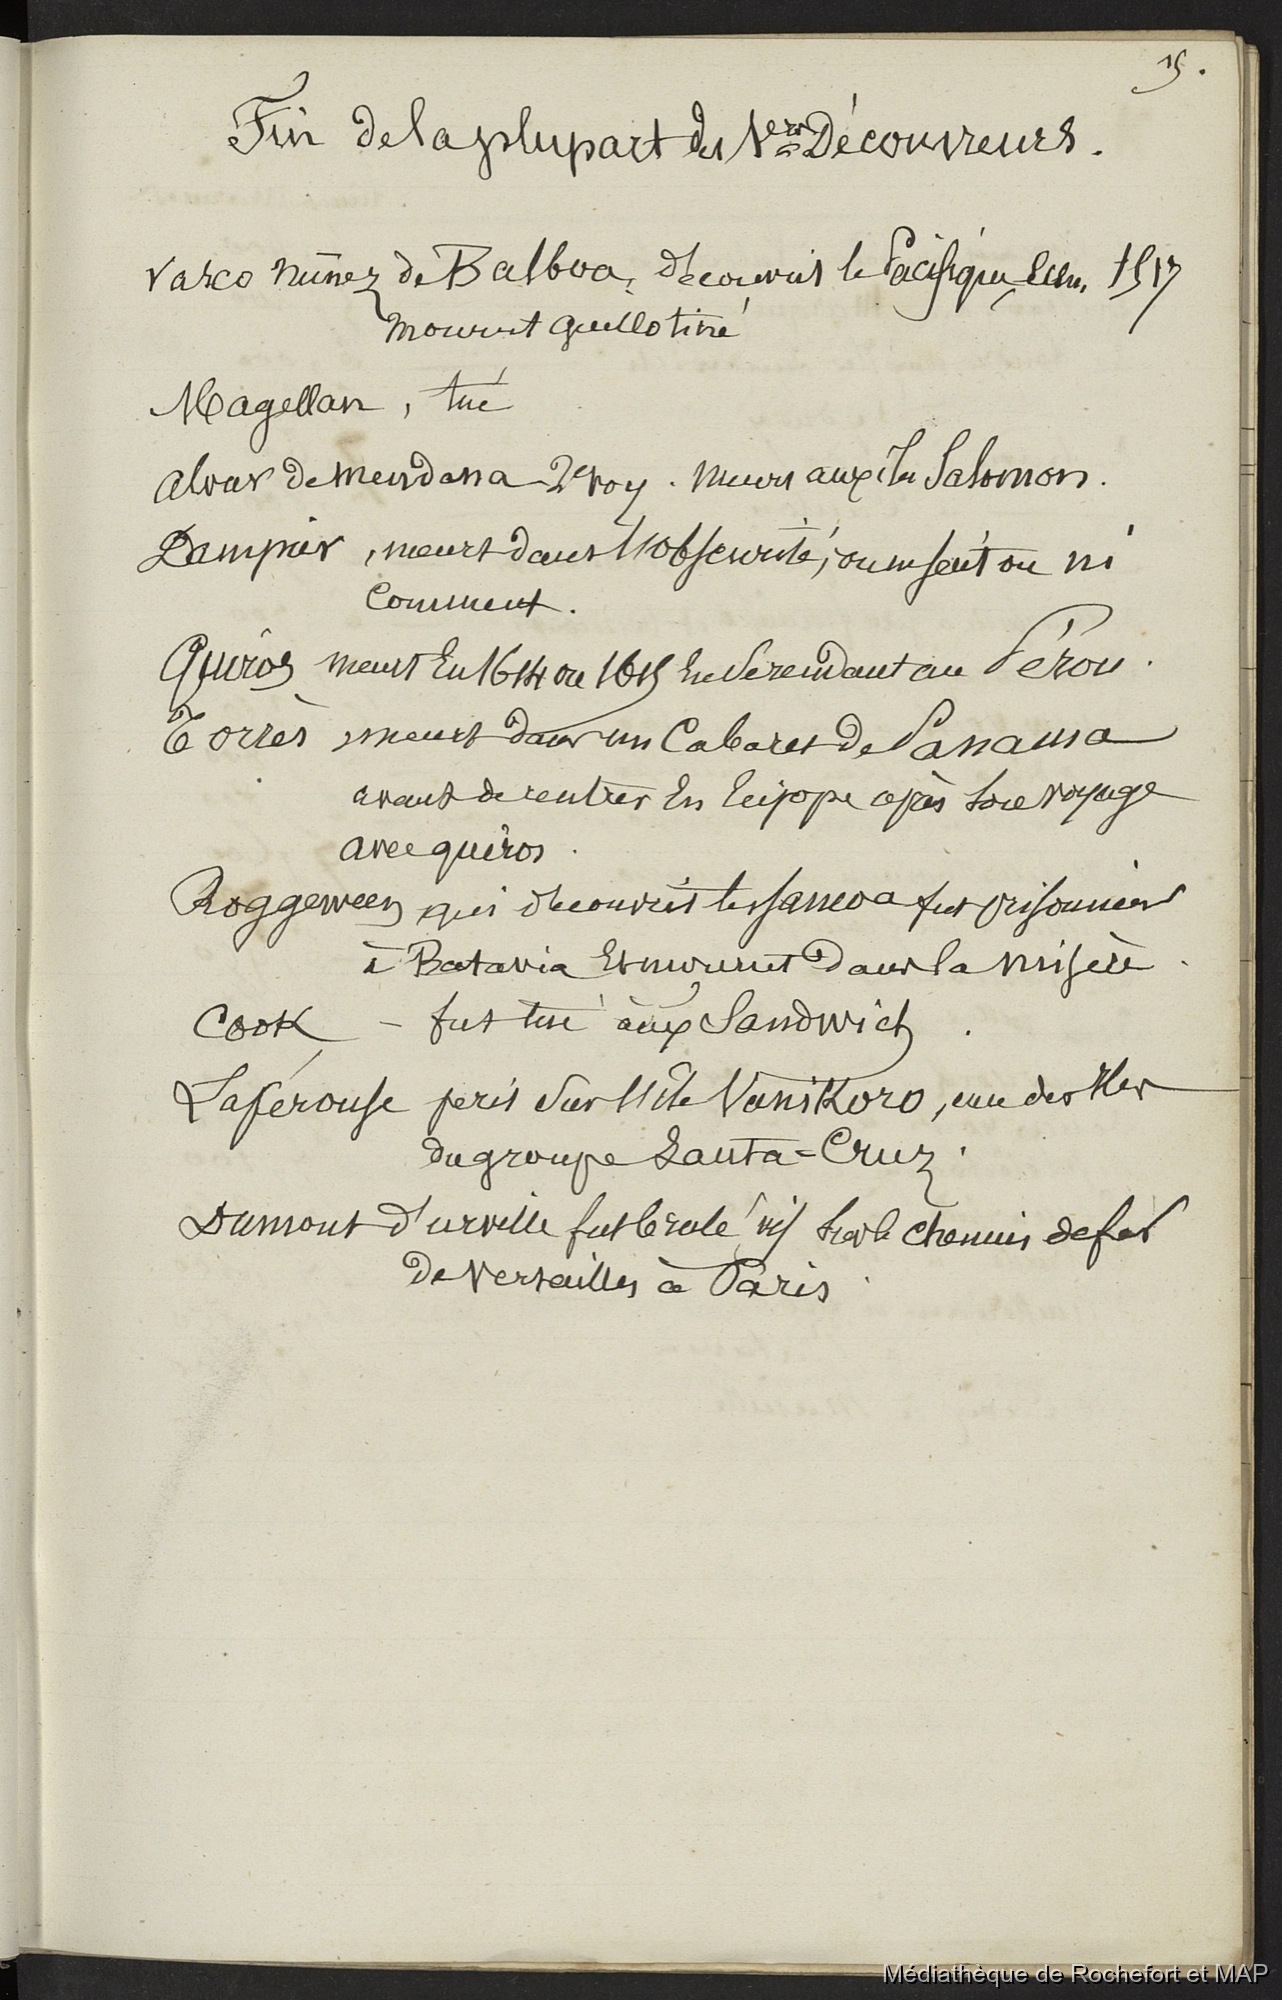 15.
Fin de la plupart des 1ers Découvreurs.
Vasco Nũnez de Balboa, découvrit le Pacifique 1517
mourut guillotiné
Magellan, tué
Alvar de Mendana 2e voy. meurt aux iles Salomon.
Dampier, meurt dans l'obscurité, on ne sait ou ni
comment.
Quirôs meurt En 1614 ou 1615 En se rendant au Pérou.
Torrès, meurt dans un Cabaret de Panama
avant de rentrer En Europe après son voyage
avec quiros.
Roggeween qui découvrit les Samoa fut prisonnier
à Batavia Et mourut dans la misère.
Cook – fut tué aux Sandwich.
Lapérouse périt sur l'île Vanikoro, une des Iles
du groupe Santa-Cruz.
Dumont d'urville fut brulé vif sur le chemin de fer
de Versailles à Paris.
Médiathèque de Rochefort et MAP